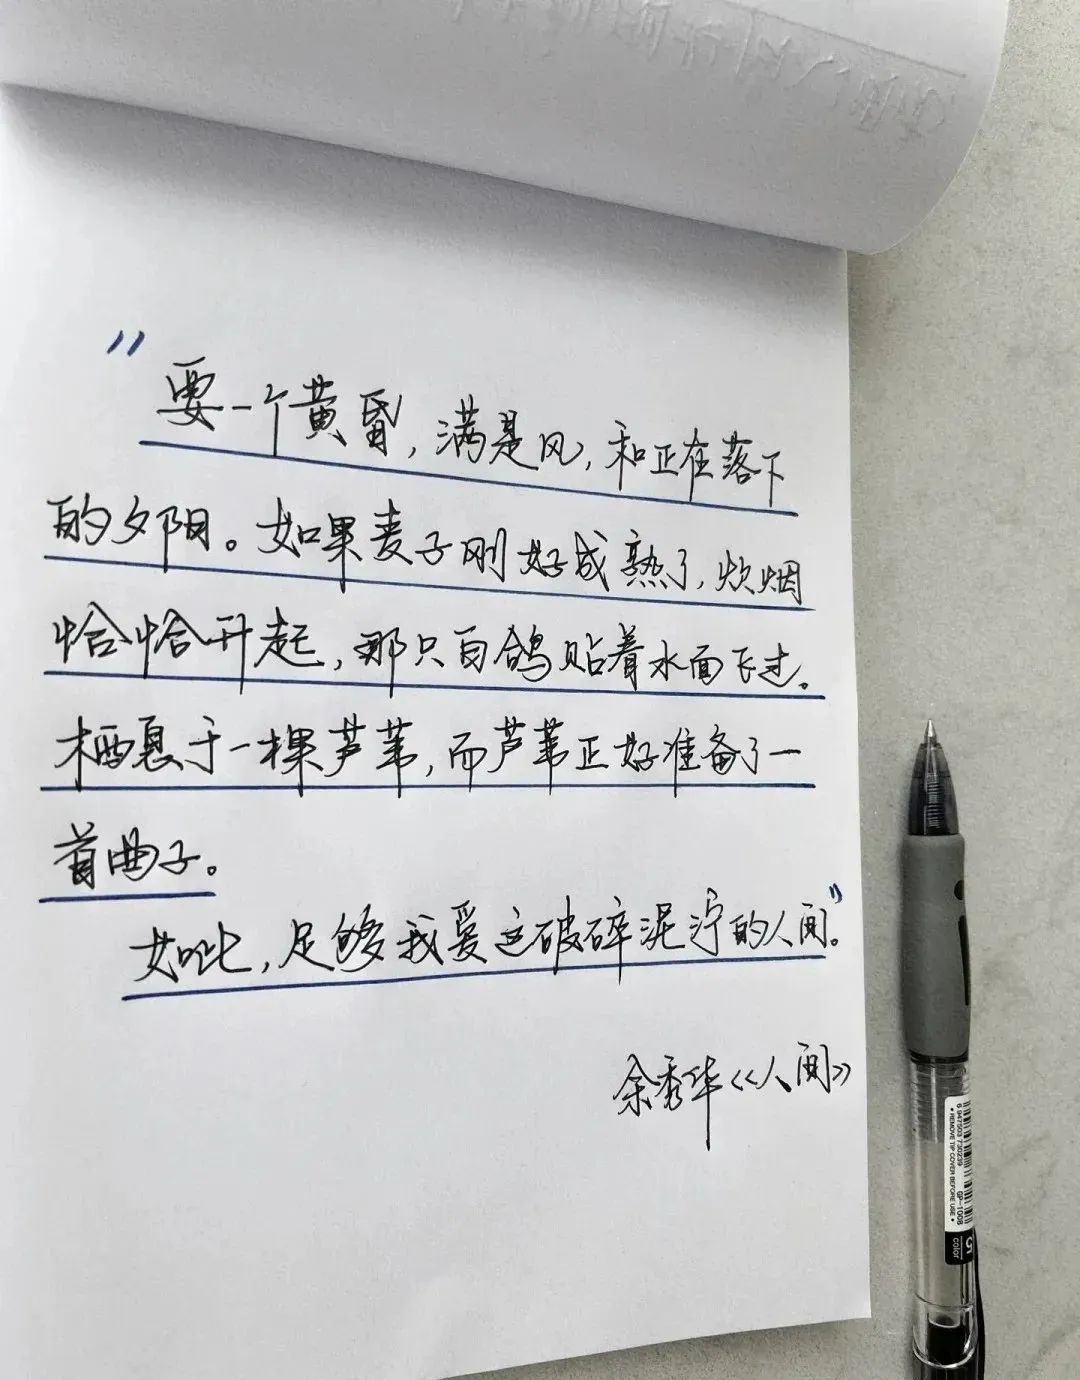 "要一个黄昏,满是风,和正在落下
的夕阳。如果麦子刚好成熟了,炊烟
恰恰升起,那只白鸽贴着水面飞过。
栖息于一棵芦苇,而芦苇正好准备了一
首曲子。
如此,足够我爱这破碎泥泞的人间。"
余秀华《人间》
6 947503 730239 GP-1008
• REMOVE TIP COVER BEFORE USE •
color